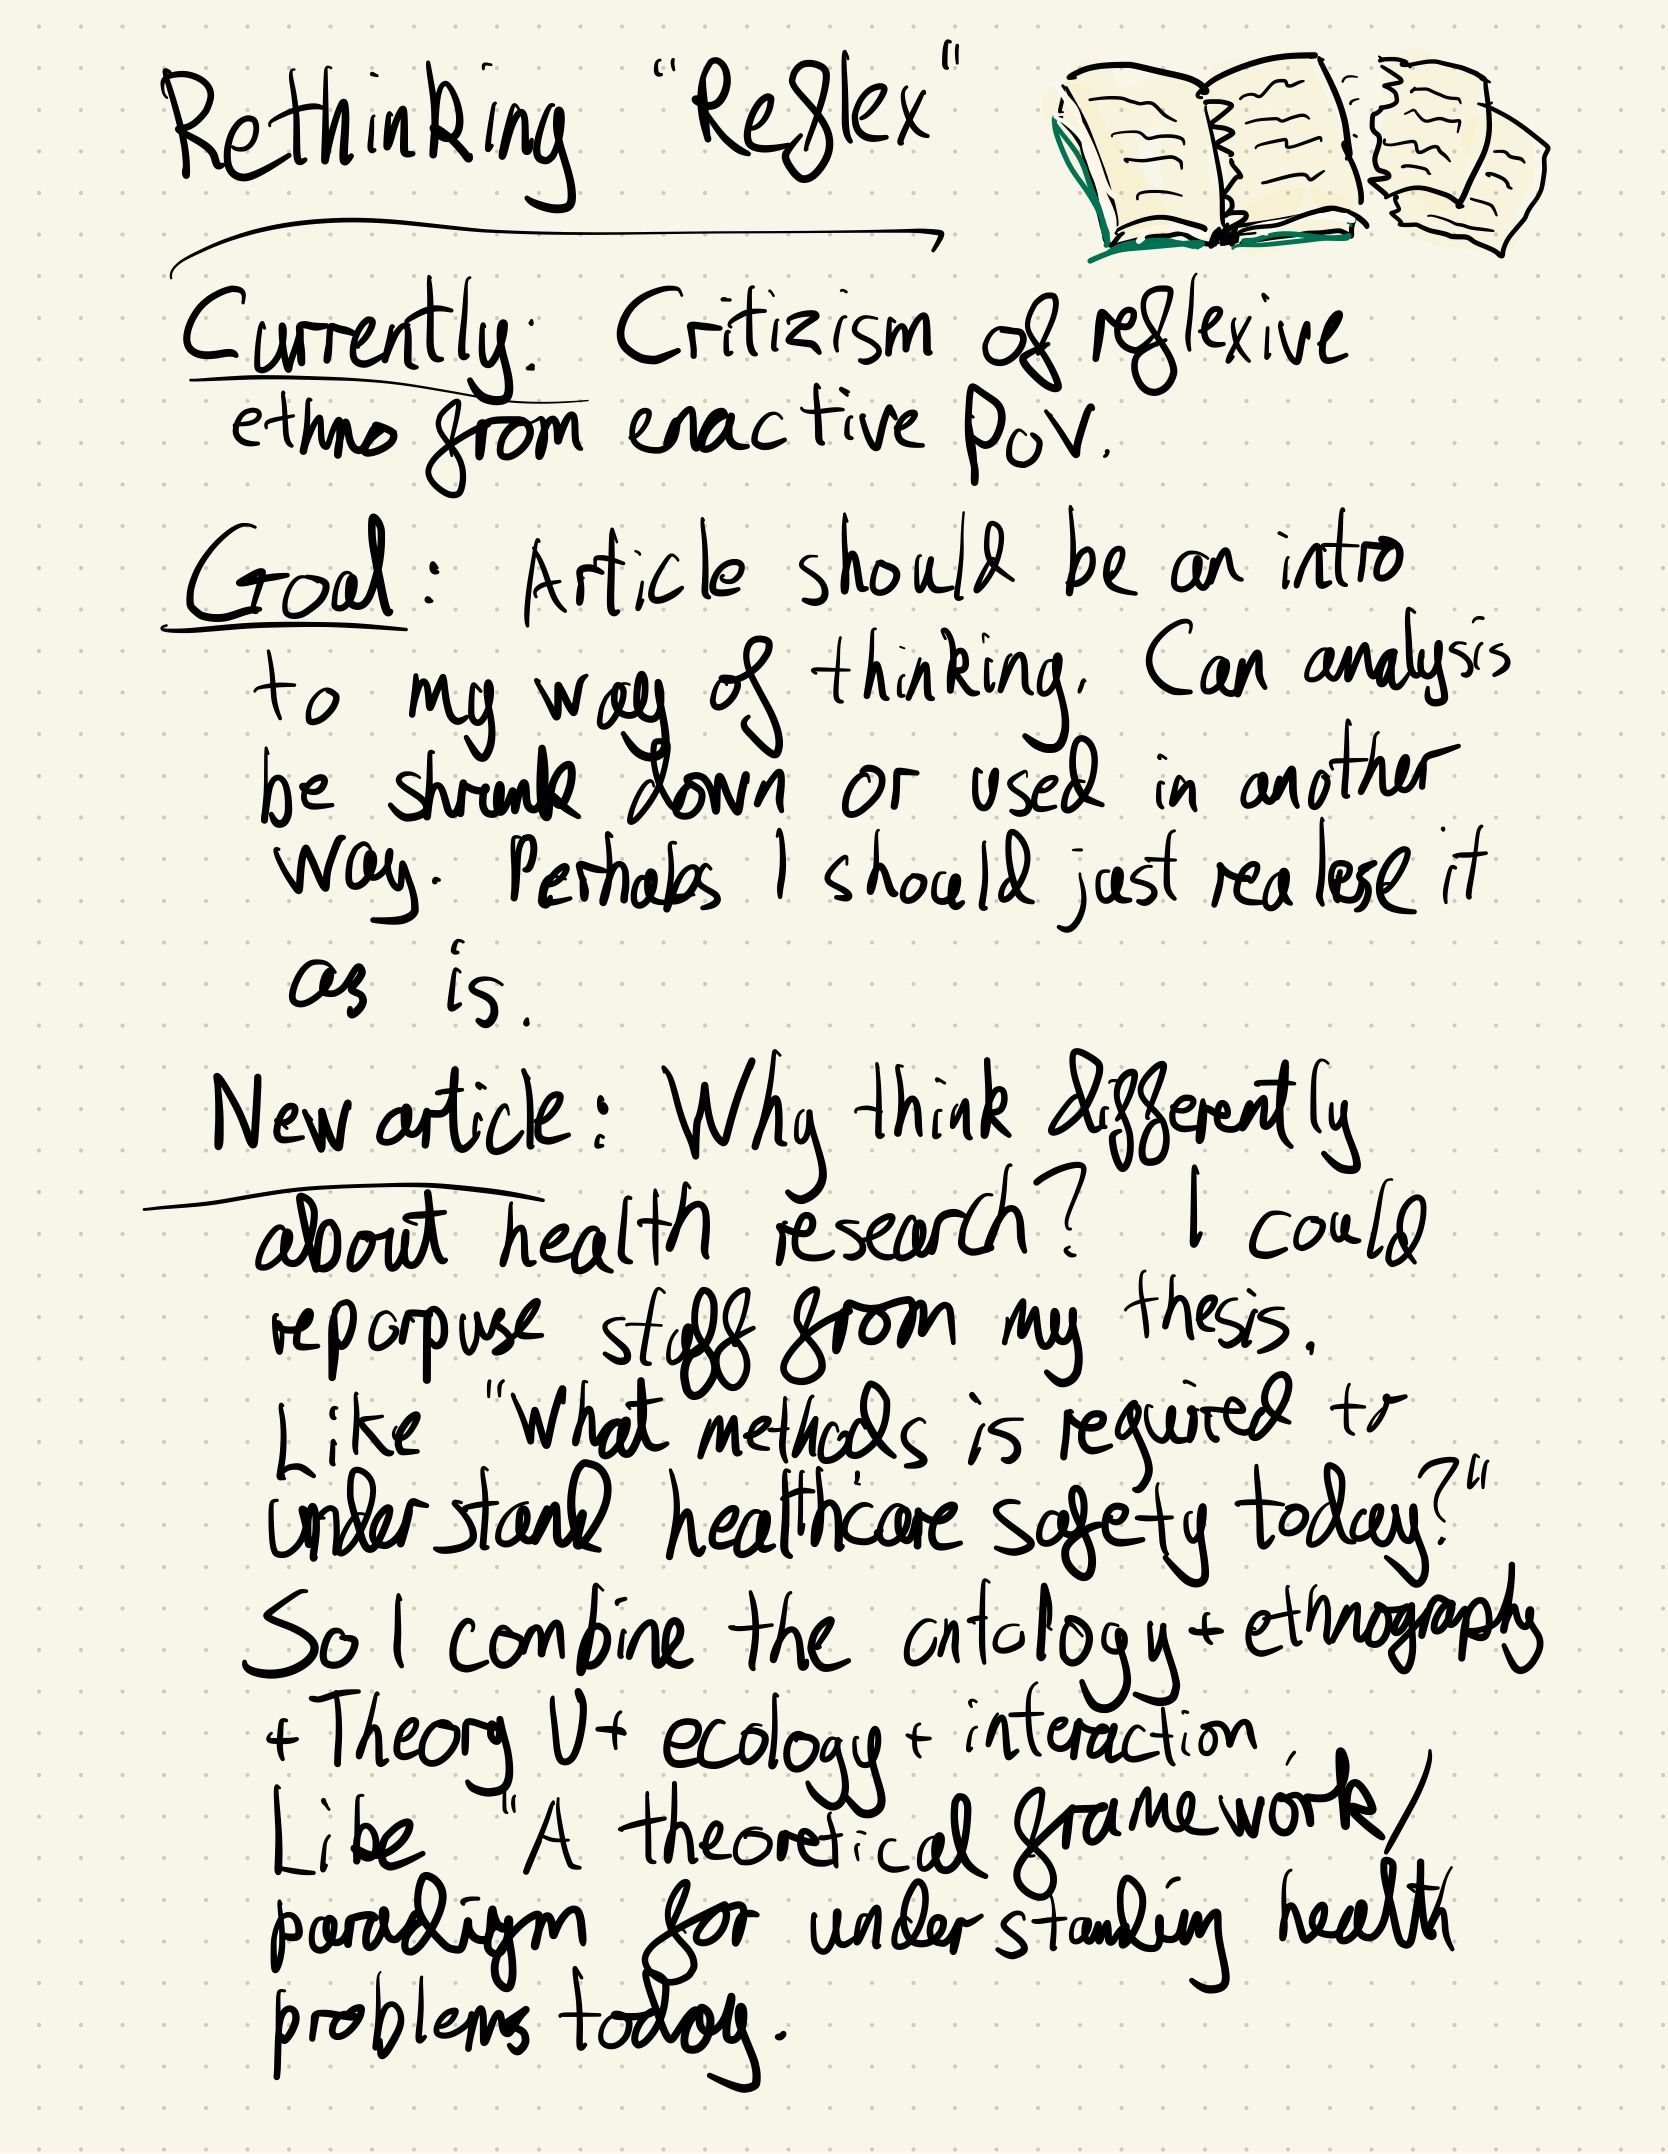 Rethinking "Reflex"
Currently: Critizism of reflexive
ethno from enactive PoV.
Goal: Article should be an intro
to my way of thinking. Can analysis
be shrunk down or used in another
way. Perhabs I should just realese it
as is.
New article: Why think differently
about health research? I could
reporpuse stuff from my thesis.
Like "What methods is required to
understand healthcare safety today?"
So I combine the ontology + ethnography
+ Theory U + ecology + interaction.
Like "A theoretical framework/
paradigm for understanding health
problems today.